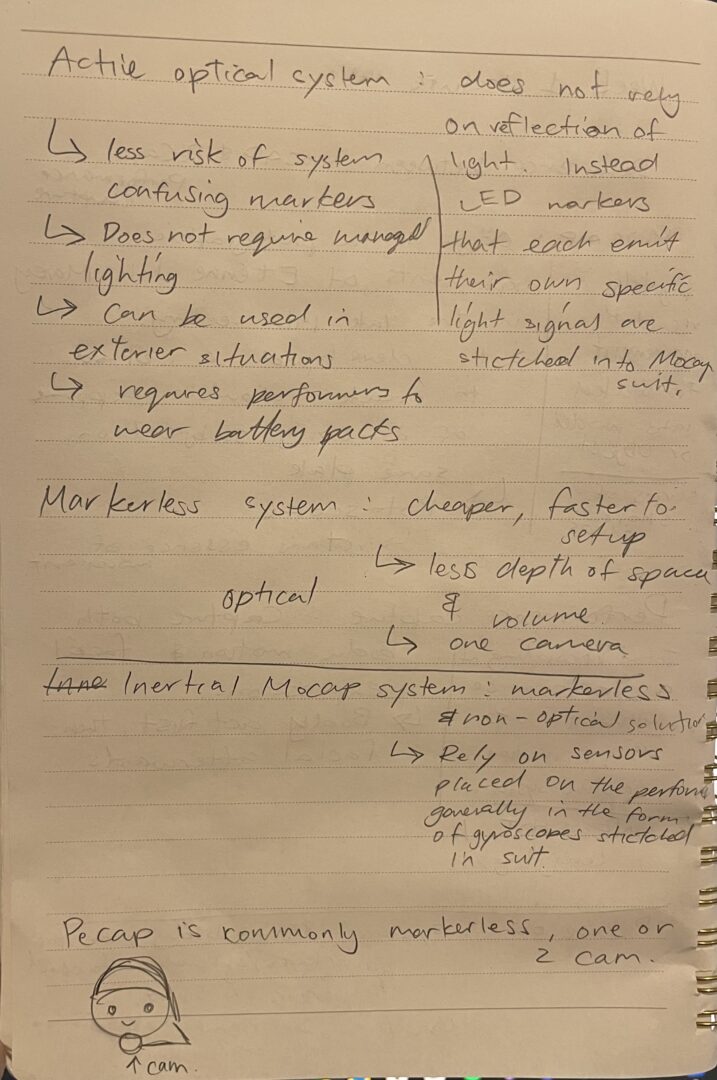 Active optical system : does not rely
on reflection of
light. Instead
LED markers
that each emit
their own specific
light signal are
stictched into Mocap
suit.
↳ less risk of system
confusing markers
↳ Does not require managed
lighting
↳ Can be used in
exterier situations
↳ requires performers to
wear battery packs
Markerless system : cheaper, faster to
setup
↳ less depth of space
optical & volume.
↳ one camera
Inne Inertial Mocap system : markerless
& non-optical solution
↳ Rely on sensors
placed on the perform
generally in the form
of gyroscopes stictched
in suit.
Pecap is kommonly markerless, one or
2 cam.
↑ cam.